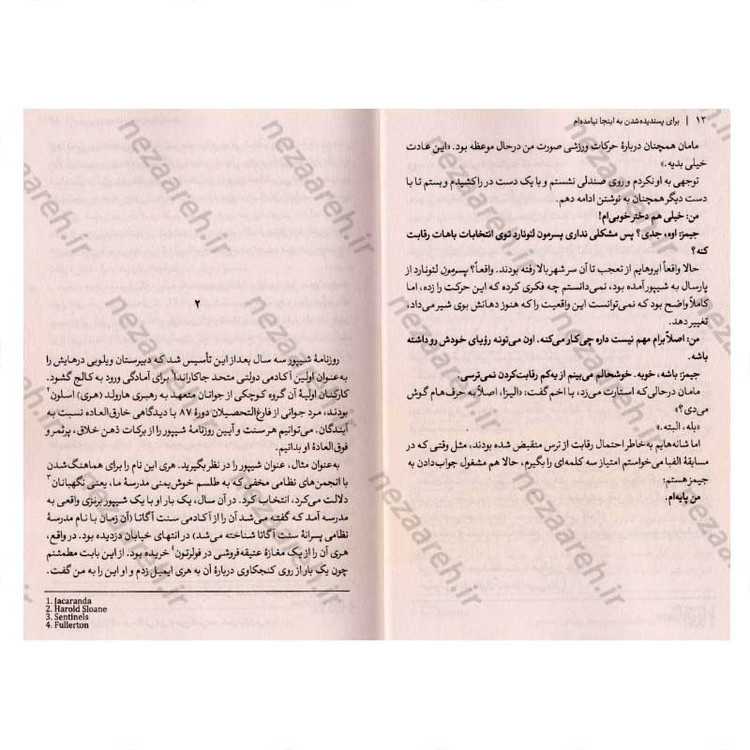 ۱۲ | برای پسندیده‌شدن به اینجا نیامده‌ام
مامان همچنان دربارهٔ حرکات ورزشی صورت من درحال موعظه بود. «این عادت
خیلی بدیه.»
توجهی به او نکردم و روی صندلی نشستم و با یک دست در را کشیدم و بستم تا با
دست دیگر همچنان به نوشتن ادامه دهم.
من: خیلی هم دختر خوبی‌ام!
جیمز: اوه، جدی؟ پس مشکلی نداری پسرمون لئونارد توی انتخابات باهات رقابت
کنه؟
حالا واقعاً ابروهایم از تعجب تا آن سر شهر بالا رفته بودند. واقعاً؟ پسرمون لئونارد از
پارسال به شیپور آمده بود، نمی‌دانستم چه فکری کرده که این حرکت را زده، اما
کاملاً واضح بود که نمی‌توانست این واقعیت را که هنوز دهانش بوی شیر می‌داد،
تغییر دهد.
من: اصلاً برام مهم نیست داره چی‌کار می‌کنه. اون می‌تونه رؤیای خودش رو داشته
باشه.
جیمز: باشه، خوبه. خوشحالم می‌بینم از یه‌کم رقابت‌کردن نمی‌ترسی.
مامان درحالی‌که استارت می‌زد، با اخم گفت: «الیزا، اصلاً به حرف‌هام گوش
می‌دی؟»
«بله، البته.»
اما شانه‌هایم به‌خاطر احتمال رقابت از ترس منقبض شده بودند، مثل وقتی که در
مسابقهٔ الفبا می‌خواستم امتیاز سه کلمه‌ای را بگیرم، حالا هم مشغول جواب‌دادن به
جیمز هستم:
من پایه‌ام.
۲
روزنامهٔ شیپور سه سال بعد از این تأسیس شد که دبیرستان ویلوبی درهایش را
به‌عنوان اولین آکادمی دولتی متحد جاکاراندا۱ برای آمادگی ورود به کالج گشود.
کارکنان اولیهٔ آن گروه کوچکی از جوانان متعهد به رهبری هارولد (هری) اسلون۲
بودند، مرد جوانی از فارغ‌التحصیلان دورهٔ ۸۷ با دیدگاهی خارق‌العاده نسبت به
آیندگان. می‌توانیم هر سنت و آیین روزنامهٔ شیپور را از برکات ذهن خلاق، پرثمر و
فوق‌العادهٔ او بدانیم.
به‌عنوان مثال، عنوان شیپور را در نظر بگیرید. هری این نام را برای هماهنگ‌شدن
با انجمن‌های نظامی مخفی که به طلسم خوش‌یمنی مدرسهٔ ما، یعنی نگهبانان۳
دلالت می‌کرد، انتخاب کرد. در آن سال، یک بار او با یک شیپور برنزی واقعی به
مدرسه آمد که گفته می‌شد آن را از آکادمی سنت آگاتا (آن زمان با نام مدرسهٔ
نظامی پسرانهٔ سنت آگاتا شناخته می‌شد) در انتهای خیابان دزدیده بود. در واقع،
هری آن را از یک مغازهٔ عتیقه‌فروشی در فولرتون۴ خریده بود. از این بابت مطمئنم
چون یک بار از روی کنجکاوی دربارهٔ آن به هری ایمیل زدم و او این را به من گفت.
1. Jacaranda
2. Harold Sloane
3. Sentinels
4. Fullerton
nezaareh.ir
nezaareh.ir
nezaareh.ir
nezaareh.ir
nezaareh.ir
nezaareh.ir
nezaareh.ir
nezaareh.ir
nezaareh.ir